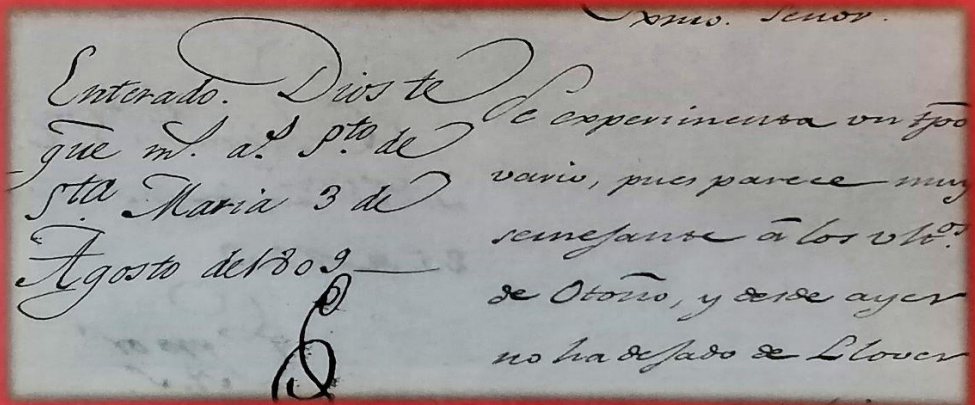 Exmo. Señor.
Enterado. Dios te
gūe m.s a.s Pto. de
Sta. Maria 3 de
Agosto de 1809
Se experimenta un tpō
vario, pues parece muy
semejante â los ulto.s
de Otoño, y desde ayer
no ha dejado de Llover